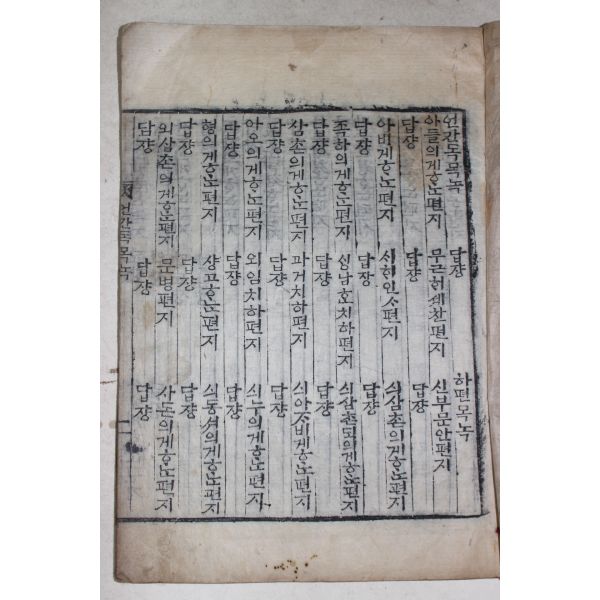 언간독목녹 답쟝 하편목녹
아들의게ᄒᆞᄂᆞᆫ편지 무근ᄒᆡ세찬편지 신부문안편지
답쟝 답쟝 답쟝
아비게ᄒᆞᄂᆞᆫ편지 편지 싀삼촌의게ᄒᆞᄂᆞᆫ편지
답쟝 답쟝 답쟝
족하의게ᄒᆞᄂᆞᆫ편지 ᄉᆡᆼ남ᄒᆞᆫ치하편지 싀삼촌모의게ᄒᆞᄂᆞᆫ편지
답쟝 답쟝 답쟝
삼촌의게ᄒᆞᄂᆞᆫ편지 과거치하편지 싀아ᄌᆞ비게ᄒᆞᄂᆞᆫ편지
답쟝 답쟝 답쟝
아오의게ᄒᆞᄂᆞᆫ편지 외임치하편지 싀누의게ᄒᆞᄂᆞᆫ편지
답쟝 답쟝 답쟝
형의게ᄒᆞᄂᆞᆫ편지 샹고ᄒᆞᄂᆞᆫ편지 싀동셔의게ᄒᆞᄂᆞᆫ편지
답쟝 답쟝 답쟝
외삼촌의게ᄒᆞᄂᆞᆫ편지 문병편지 사돈의게ᄒᆞᄂᆞᆫ편지
답쟝 답쟝 답쟝
언간독목녹 一